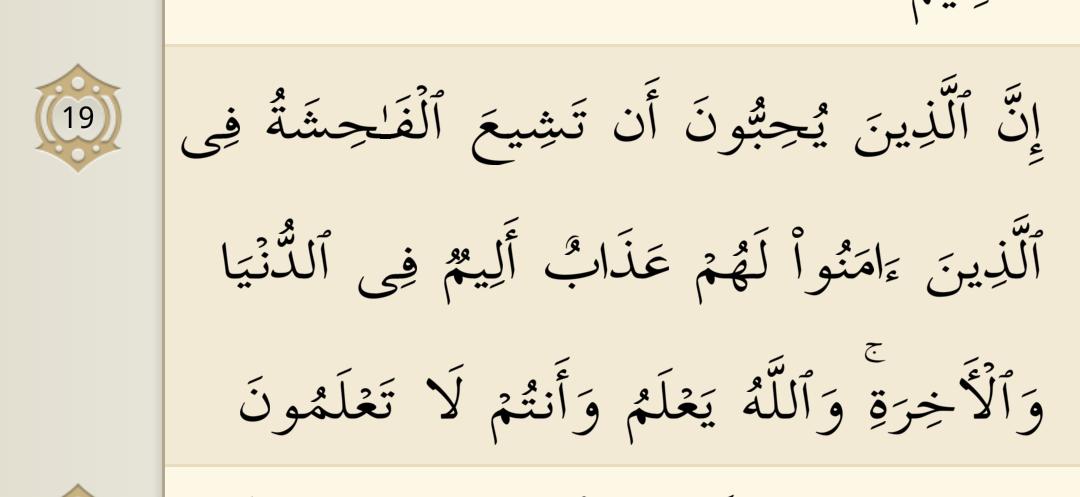 19
إِنَّ ٱلَّذِينَ يُحِبُّونَ أَن تَشِيعَ ٱلْفَـٰحِشَةُ فِى
ٱلَّذِينَ ءَامَنُوا۟ لَهُمْ عَذَابٌ أَلِيمٌ فِى ٱلدُّنْيَا
وَٱلْأَخِرَةِ ۚ وَٱللَّهُ يَعْلَمُ وَأَنتُمْ لَا تَعْلَمُونَ